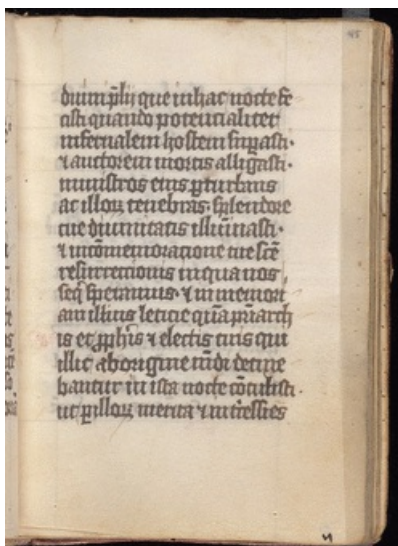 45
diuinꝑlij que in hac nocte fe
cisti quando potencialiter
infernalem hostem suꝑasti·
⁊ auctorem mortis alligasti·
ministros eius ꝑturbans
ac illoꝝ tenebras· splendore
tue diuinitatis illūinasti·
⁊ in cōmemoracione tue scē
resurrectionis in qua nos
seq̄ speramus· ⁊ in memori
am illius leticie quā pr̄iarch
is et ꝓph̄is ⁊ electis tuis qui
illic ab origine mūdi detine
bantur in ista nocte cōtulisti·
ut ꝑ illoꝝ merita ⁊ int̄cessōes